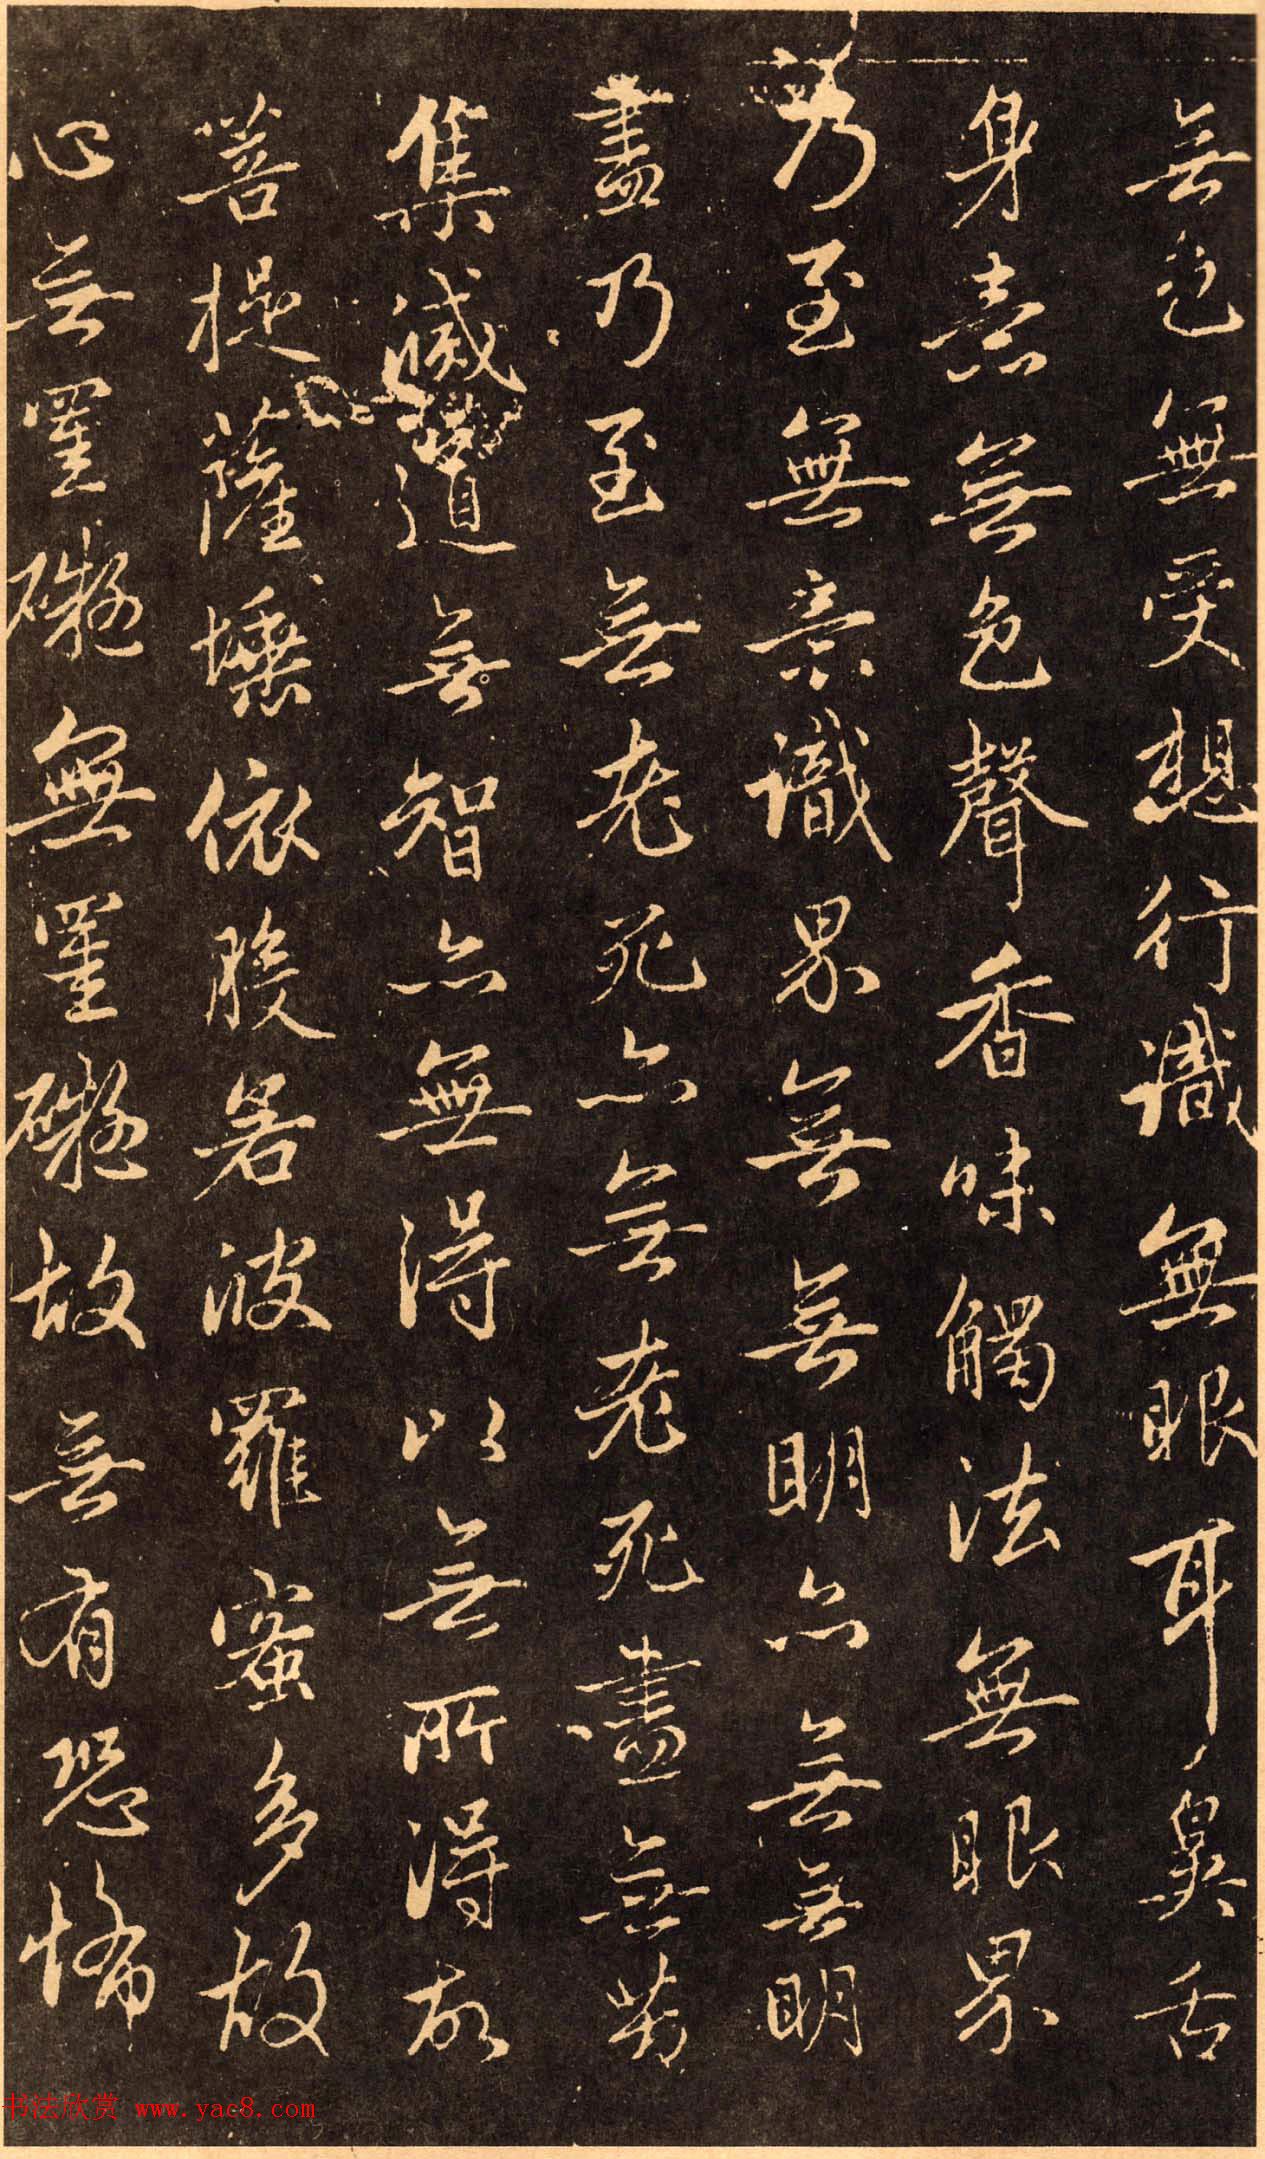 無色無受想行識無眼耳鼻舌
身意無色聲香味觸法無眼界
乃至無意識界無無明亦無無明
盡乃至無老死亦無老死盡無苦
集滅道無智亦無得以無所得故
菩提薩埵依般若波羅蜜多故
心無罣礙無罣礙故無有恐怖
书法欣赏 www.yac8.com